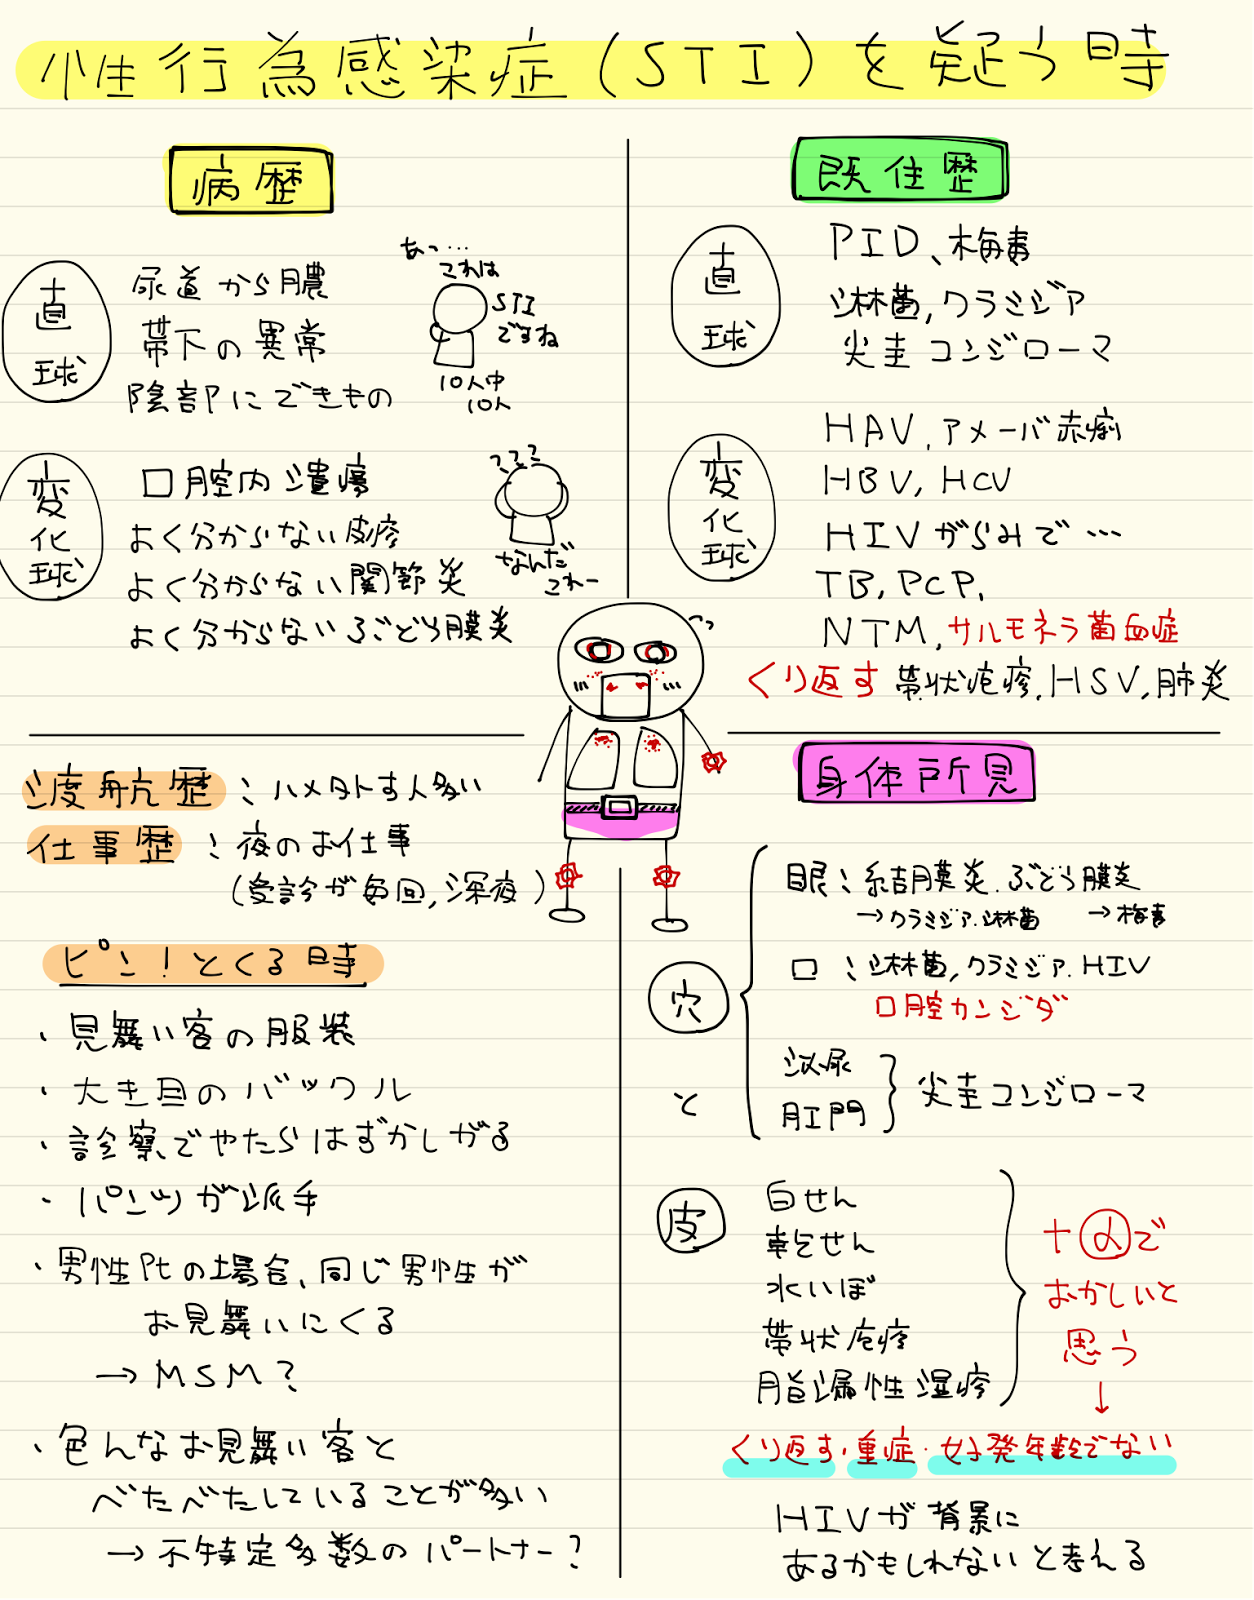 性行為感染症(STI)を疑う時
病歴
直球
尿道から膿
帯下の異常
陰部にできもの
あっ…
これは
STI
ですね
10人中
10人
変化球
口腔内潰瘍
よく分からない皮疹
よく分からない関節炎
よく分からないぶどう膜炎
???
なんだ
これー
既住歴
直球
PID、梅毒
淋菌,クラミジア
尖圭コンジローマ
変化球
HAV,アメーバ赤痢
HBV,HCV
HIVがらみで…
TB,PCP,
NTM,サルモネラ菌血症
くり返す帯状疱疹,HSV,肺炎
渡航歴:ハメ外す人多い
仕事歴:夜のお仕事
(受診が毎回,深夜)
ピン!とくる時
・見舞い客の服装
・大き目のバックル
・診察でやたらはずかしがる
・パンツが派手
・男性Ptの場合、同じ男性が
お見舞いにくる
→MSM?
・色んなお見舞い客と
べたべたしていることが多い
→不特定多数のパートナー?
身体所見
穴
眼:結膜炎.ぶどう膜炎
→クラミジア.淋菌 →梅毒
口:淋菌,クラミジア.HIV
口腔カンジダ
泌尿
肛門
尖圭コンジローマ
と
皮
白せん
乾せん
水いぼ
帯状疱疹
脂漏性湿疹
+αで
おかしいと
思う
↓
くり返す・重症・好発年齢でない
HIVが背景に
あるかもしれないと考える